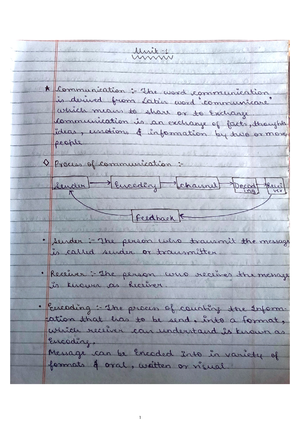 Unit :-
★ Communication :- The word communication
is derived from Latin word "communicare"
which means to share or to Exchange
communication is an exchange of facts, thoughts
ideas, emotions & information by two or more
people
◇ Process of communication :-
Sender Encoding Channel Decoding Receiver
Feedback
• Sender :- The person who transmit the message
is called sender or transmitter
• Receiver :- The person who receives the message
is known as Receiver.
• Encoding :- The process of the Inform-
ation that has to be send, into a format,
which receiver can understand is known as
Encoding,
Message can be Encoded Into in variety of
formats & oral, written or visual
1